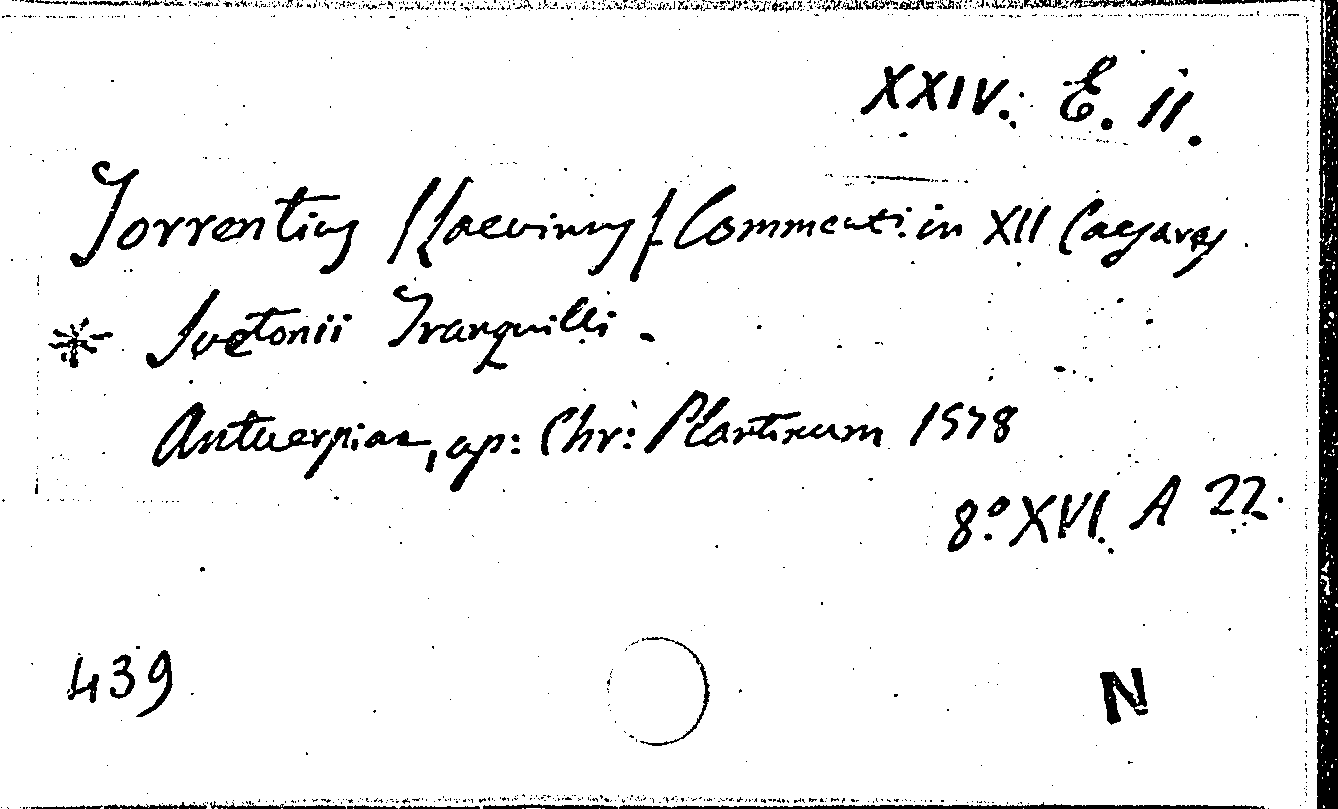 XXIV. E. 11.
Torrentius /Laevinus/ Comment: in XII Caesares
* Svetonii Tranquilli.
Antuerpiae, ap: Chr: Plantinum 1578
8° XVI. A 22.
439
N